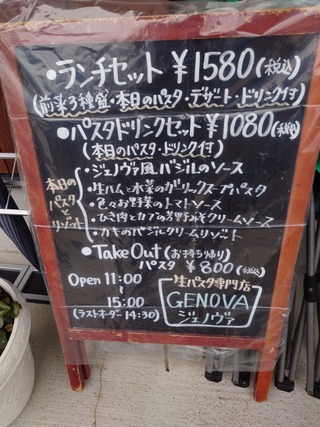 ・ランチセット ¥1580(税込)
(前菜3種盛・本日のパスタ・デザート・ドリンク付)
・パスタドリンクセット ¥1080(税込)
(本日のパスタ・ドリンク付)
本日のパスタとリゾット
・ジェノヴァ風バジルのソース
・生ハムと水菜のガーリックスープパスタ
・色々お野菜のトマトソース
・ひき肉とカブの芳野みそクリームソース
・カキのバジルクリームリゾット
・Take Out(お持ち帰り)
パスタ ¥800(税込)
Open 11:00
〜
15:00
(ラストオーダー 14:30)
生パスタ専門店
GENOVA
ジェノヴァ